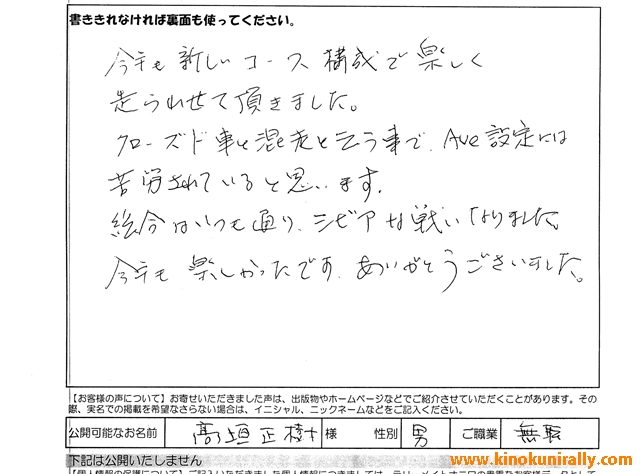 書ききれなければ裏面も使ってください。
今年も新しいコース構成で楽しく
走らせて頂きました。
クローズド車と混走と云う事で、Ave設定には
苦労されていると思います。
総合はいつも通り、シビアな戦いになりました。
今年も楽しかったです。ありがとうございました。
【お客様の声について】お寄せいただきました声は、出版物やホームページなどでご紹介させていただくことがあります。その
際、実名での掲載を希望なさらない場合は、イニシャル、ニックネームなどをご記入ください。
公開可能なお名前 高垣正樹 様 性別 男 ご職業 無職
下記は公開いたしません
www.kinokunirally.com